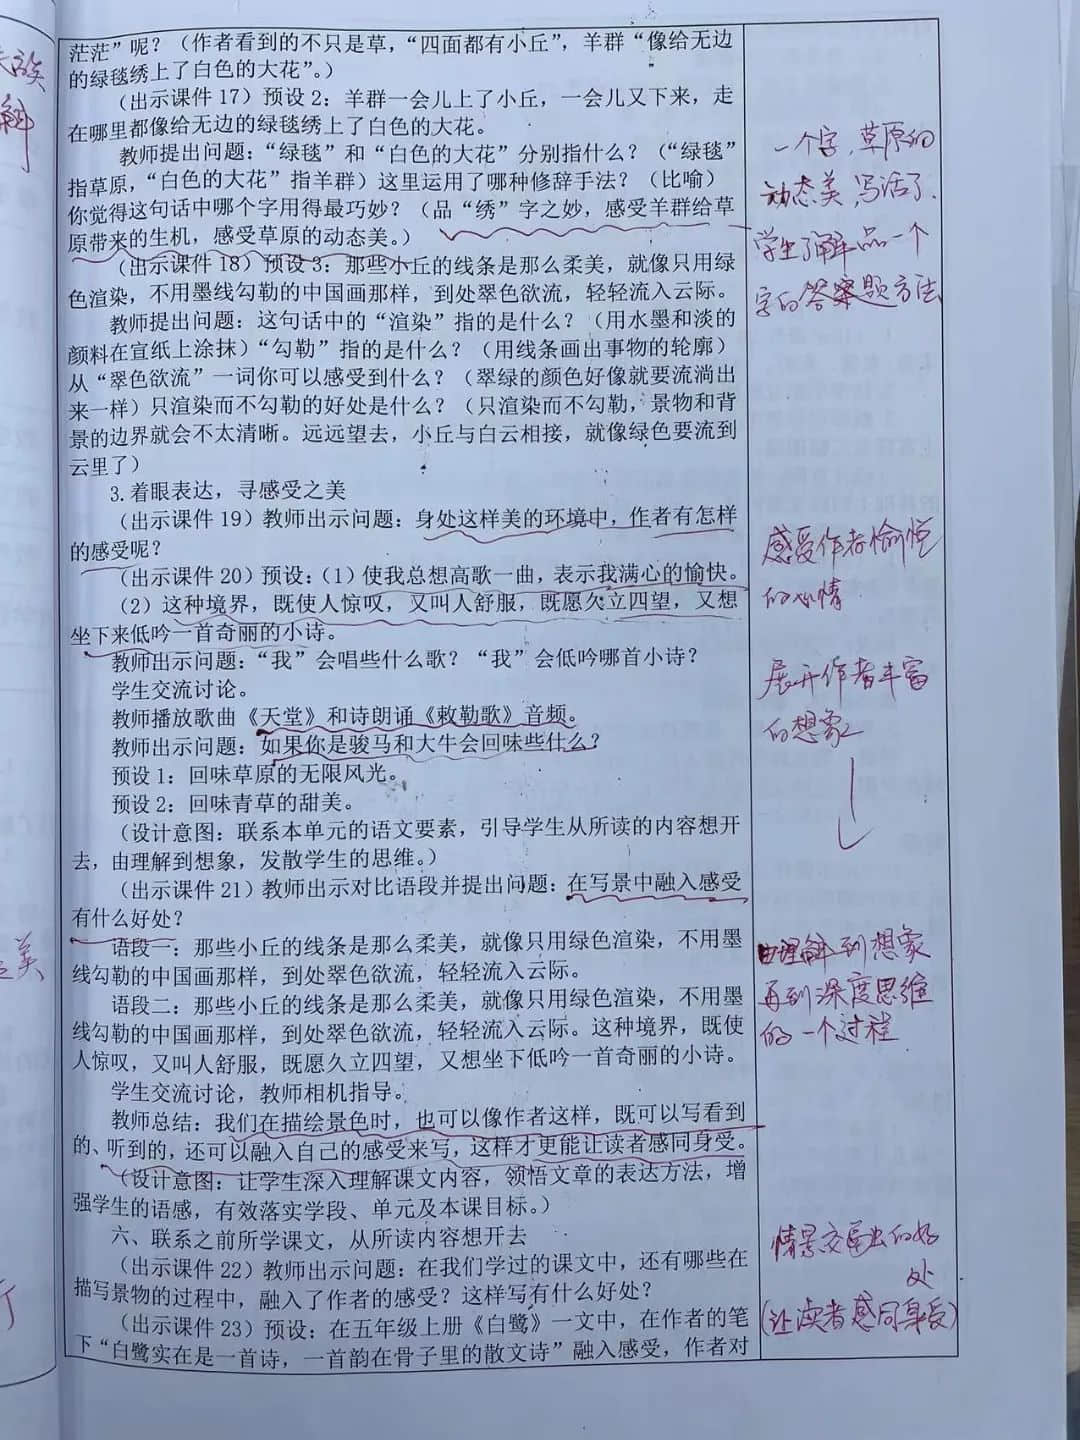 茫茫”呢？（作者看到的不只是草，“四面都有小丘”，羊群“像给无边
的绿毯绣上了白色的大花”。）
（出示课件 17）预设 2：羊群一会儿上了小丘，一会儿又下来，走
在哪里都像给无边的绿毯绣上了白色的大花。
教师提出问题：“绿毯”和“白色的大花”分别指什么？（“绿毯”
指草原，“白色的大花”指羊群）这里运用了哪种修辞手法？（比喻）
你觉得这句话中哪个字用得最巧妙？（品“绣”字之妙，感受羊群给草
原带来的生机，感受草原的动态美。）
（出示课件 18）预设 3：那些小丘的线条是那么柔美，就像只用绿
色渲染，不用墨线勾勒的中国画那样，到处翠色欲流，轻轻流入云际。
教师提出问题：这句话中的“渲染”指的是什么？（用水墨和淡的
颜料在宣纸上涂抹）“勾勒”指的是什么？（用线条画出事物的轮廓）
从“翠色欲流”一词你可以感受到什么？（翠绿的颜色好像就要流淌出
来一样）只渲染而不勾勒的好处是什么？（只渲染而不勾勒，景物和背
景的边界就会不太清晰。远远望去，小丘与白云相接，就像绿色要流到
云里了）
3.着眼表达，寻感受之美
（出示课件 19）教师出示问题：身处这样美的环境中，作者有怎样
的感受呢？
（出示课件 20）预设：（1）使我总想高歌一曲，表示我满心的愉快。
（2）这种境界，既使人惊叹，又叫人舒服，既愿久立四望，又想
坐下来低吟一首奇丽的小诗。
教师出示问题：“我”会唱些什么歌？“我”会低吟哪首小诗？
学生交流讨论。
教师播放歌曲《天堂》和诗朗诵《敕勒歌》音频。
教师出示问题：如果你是骏马和大牛会回味些什么？
预设 1：回味草原的无限风光。
预设 2：回味青草的甜美。
（设计意图：联系本单元的语文要素，引导学生从所读的内容想开
去，由理解到想象，发散学生的思维。）
（出示课件 21）教师出示对比语段并提出问题：在写景中融入感受
有什么好处？
语段一：那些小丘的线条是那么柔美，就像只用绿色渲染，不用墨
线勾勒的中国画那样，到处翠色欲流，轻轻流入云际。
语段二：那些小丘的线条是那么柔美，就像只用绿色渲染，不用墨
线勾勒的中国画那样，到处翠色欲流，轻轻流入云际。这种境界，既使
人惊叹，又叫人舒服，既愿久立四望，又想坐下低吟一首奇丽的小诗。
学生交流讨论，教师相机指导。
教师总结：我们在描绘景色时，也可以像作者这样，既可以写看到
的、听到的，还可以融入自己的感受来写，这样才更能让读者感同身受。
（设计意图：让学生深入理解课文内容，领悟文章的表达方法，增
强学生的语感，有效落实学段、单元及本课目标。）
六、联系之前所学课文，从所读内容想开去
（出示课件 22）教师出示问题：在我们学过的课文中，还有哪些在
描写景物的过程中，融入了作者的感受？这样写有什么好处？
（出示课件 23）预设：在五年级上册《白鹭》一文中，在作者的笔
下“白鹭实在是一首诗，一首韵在骨子里的散文诗”融入感受，作者对
一个字，草原的
动态美，写活了.
学生了解品一个
字的答案题方法
感受作者愉悦
的心情
展开作者丰富
的想象
由理解到想象
再到深度思维
的一个过程
情景交融的好
处
（让读者感同身受）
族
美